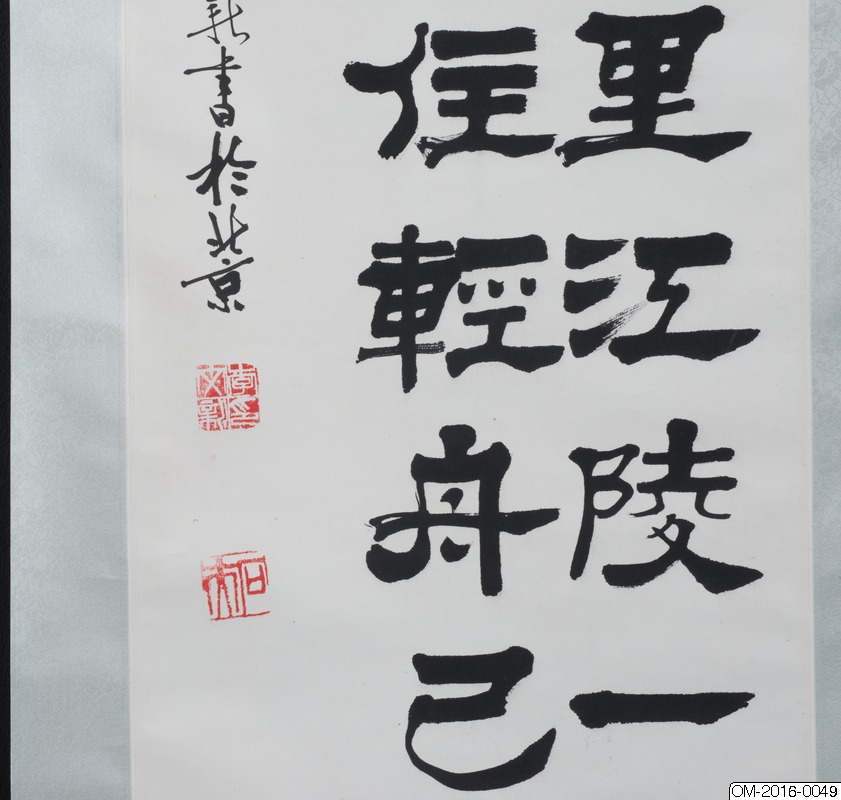 里江陵一
住輕舟已
新書於北京
李印文新
OM-2016-0049